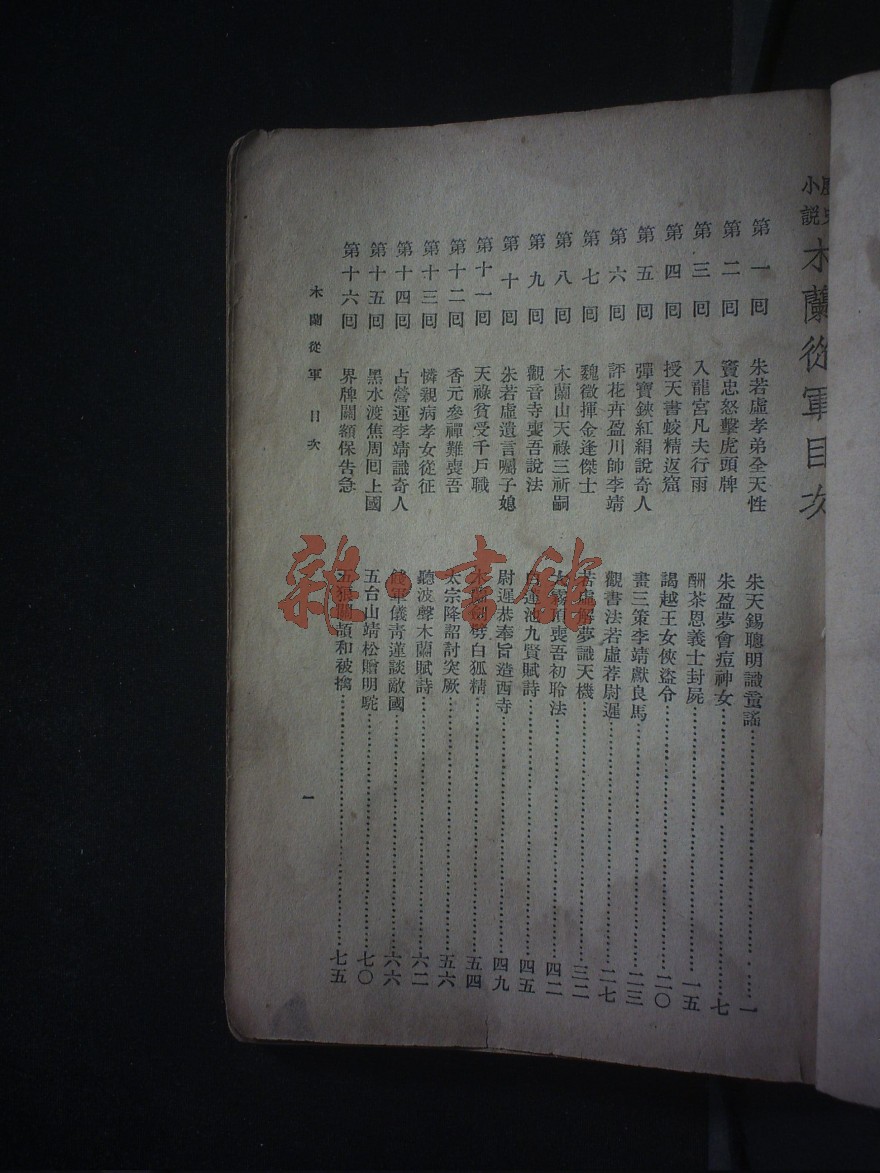 歷史小說 木蘭從軍目次
第一回 朱若虛孝弟全天性 朱天錫聰明識童謠 一
第二回 竇忠怒擊虎頭牌 朱盈夢會痘神女 七
第三回 入龍宮凡夫行雨 酬茶恩義士封屍 一五
第四回 授天書蛟精返窟 謁越王女俠盜令 二〇
第五回 彈寶鋏紅絹說奇人 畫三策李靖獻良馬 二三
第六回 評花卉盈川帥李靖 觀書法若虛荐尉遲 二七
第七回 魏徵揮金逢傑士 若虛解夢識天機 三二
第八回 木蘭山天祿三祈嗣 大霧頂喪吾初聆法 四二
第九回 觀音寺喪吾說法 白蓮池九賢賦詩 四五
第十回 朱若虛遺言囑子媳 尉遲恭奉旨造西寺 四九
第十一回 天祿貧受千戶職 木蘭劍劈白狐精 五四
第十二回 香元參禪難喪吾 太宗降詔討突厥 五六
第十三回 憐親病孝女從征 聽波聲木蘭賦詩 六二
第十四回 占營運李靖識奇人 軍儀靑蓮談敵國 六六
第十五回 黑水渡焦周回上國 五台山靖松贈明駝 七〇
第十六回 界牌關額保告急 五狼關頡和被擒 七五
木蘭從軍 目次
一
雜·書館